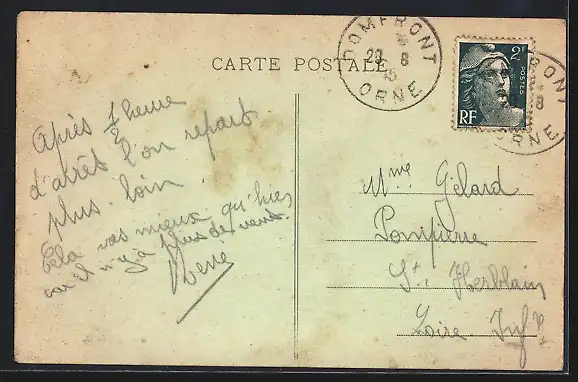 CARTE POSTALE
DOMFRONT
29 8
45
ORNE
2F
POSTES
RF
RONT
8
ORNE
Après ½ heure
d'arrêt l'on repart
plus loin
Cela vas mieux qu'hier
car il n'y a plus de vent.
René
Mme Gélard
Pompierre
St Herblain
Loire Infre